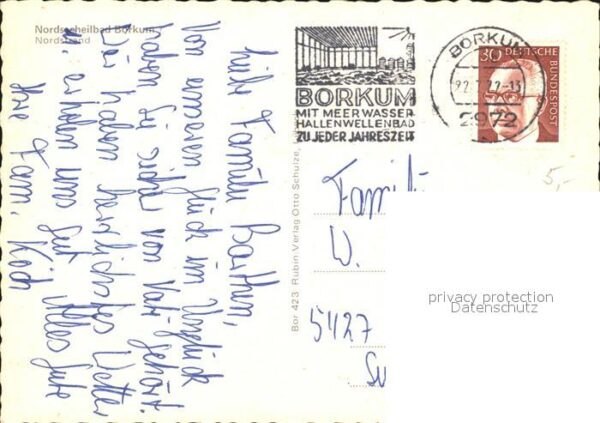 Nordseeheilbad Borkum
Nordstrand
BORKUM
MIT MEERWASSER
HALLENWELLENBAD
ZU JEDER JAHRESZEIT
BORKUM
2972
30 DEUTSCHE BUNDESPOST
5,-
Liebe Familie
Von unserem Glück im Unglück
haben Sie sicher von gehört.
Wir haben herrliches Wetter
u. erholen uns gut. Alles Gute
Ihre Fam. Koch
Bor 423 Rubin Verlag Otto Schulze,
Famili
W.
5427
privacy protection
Datenschutz